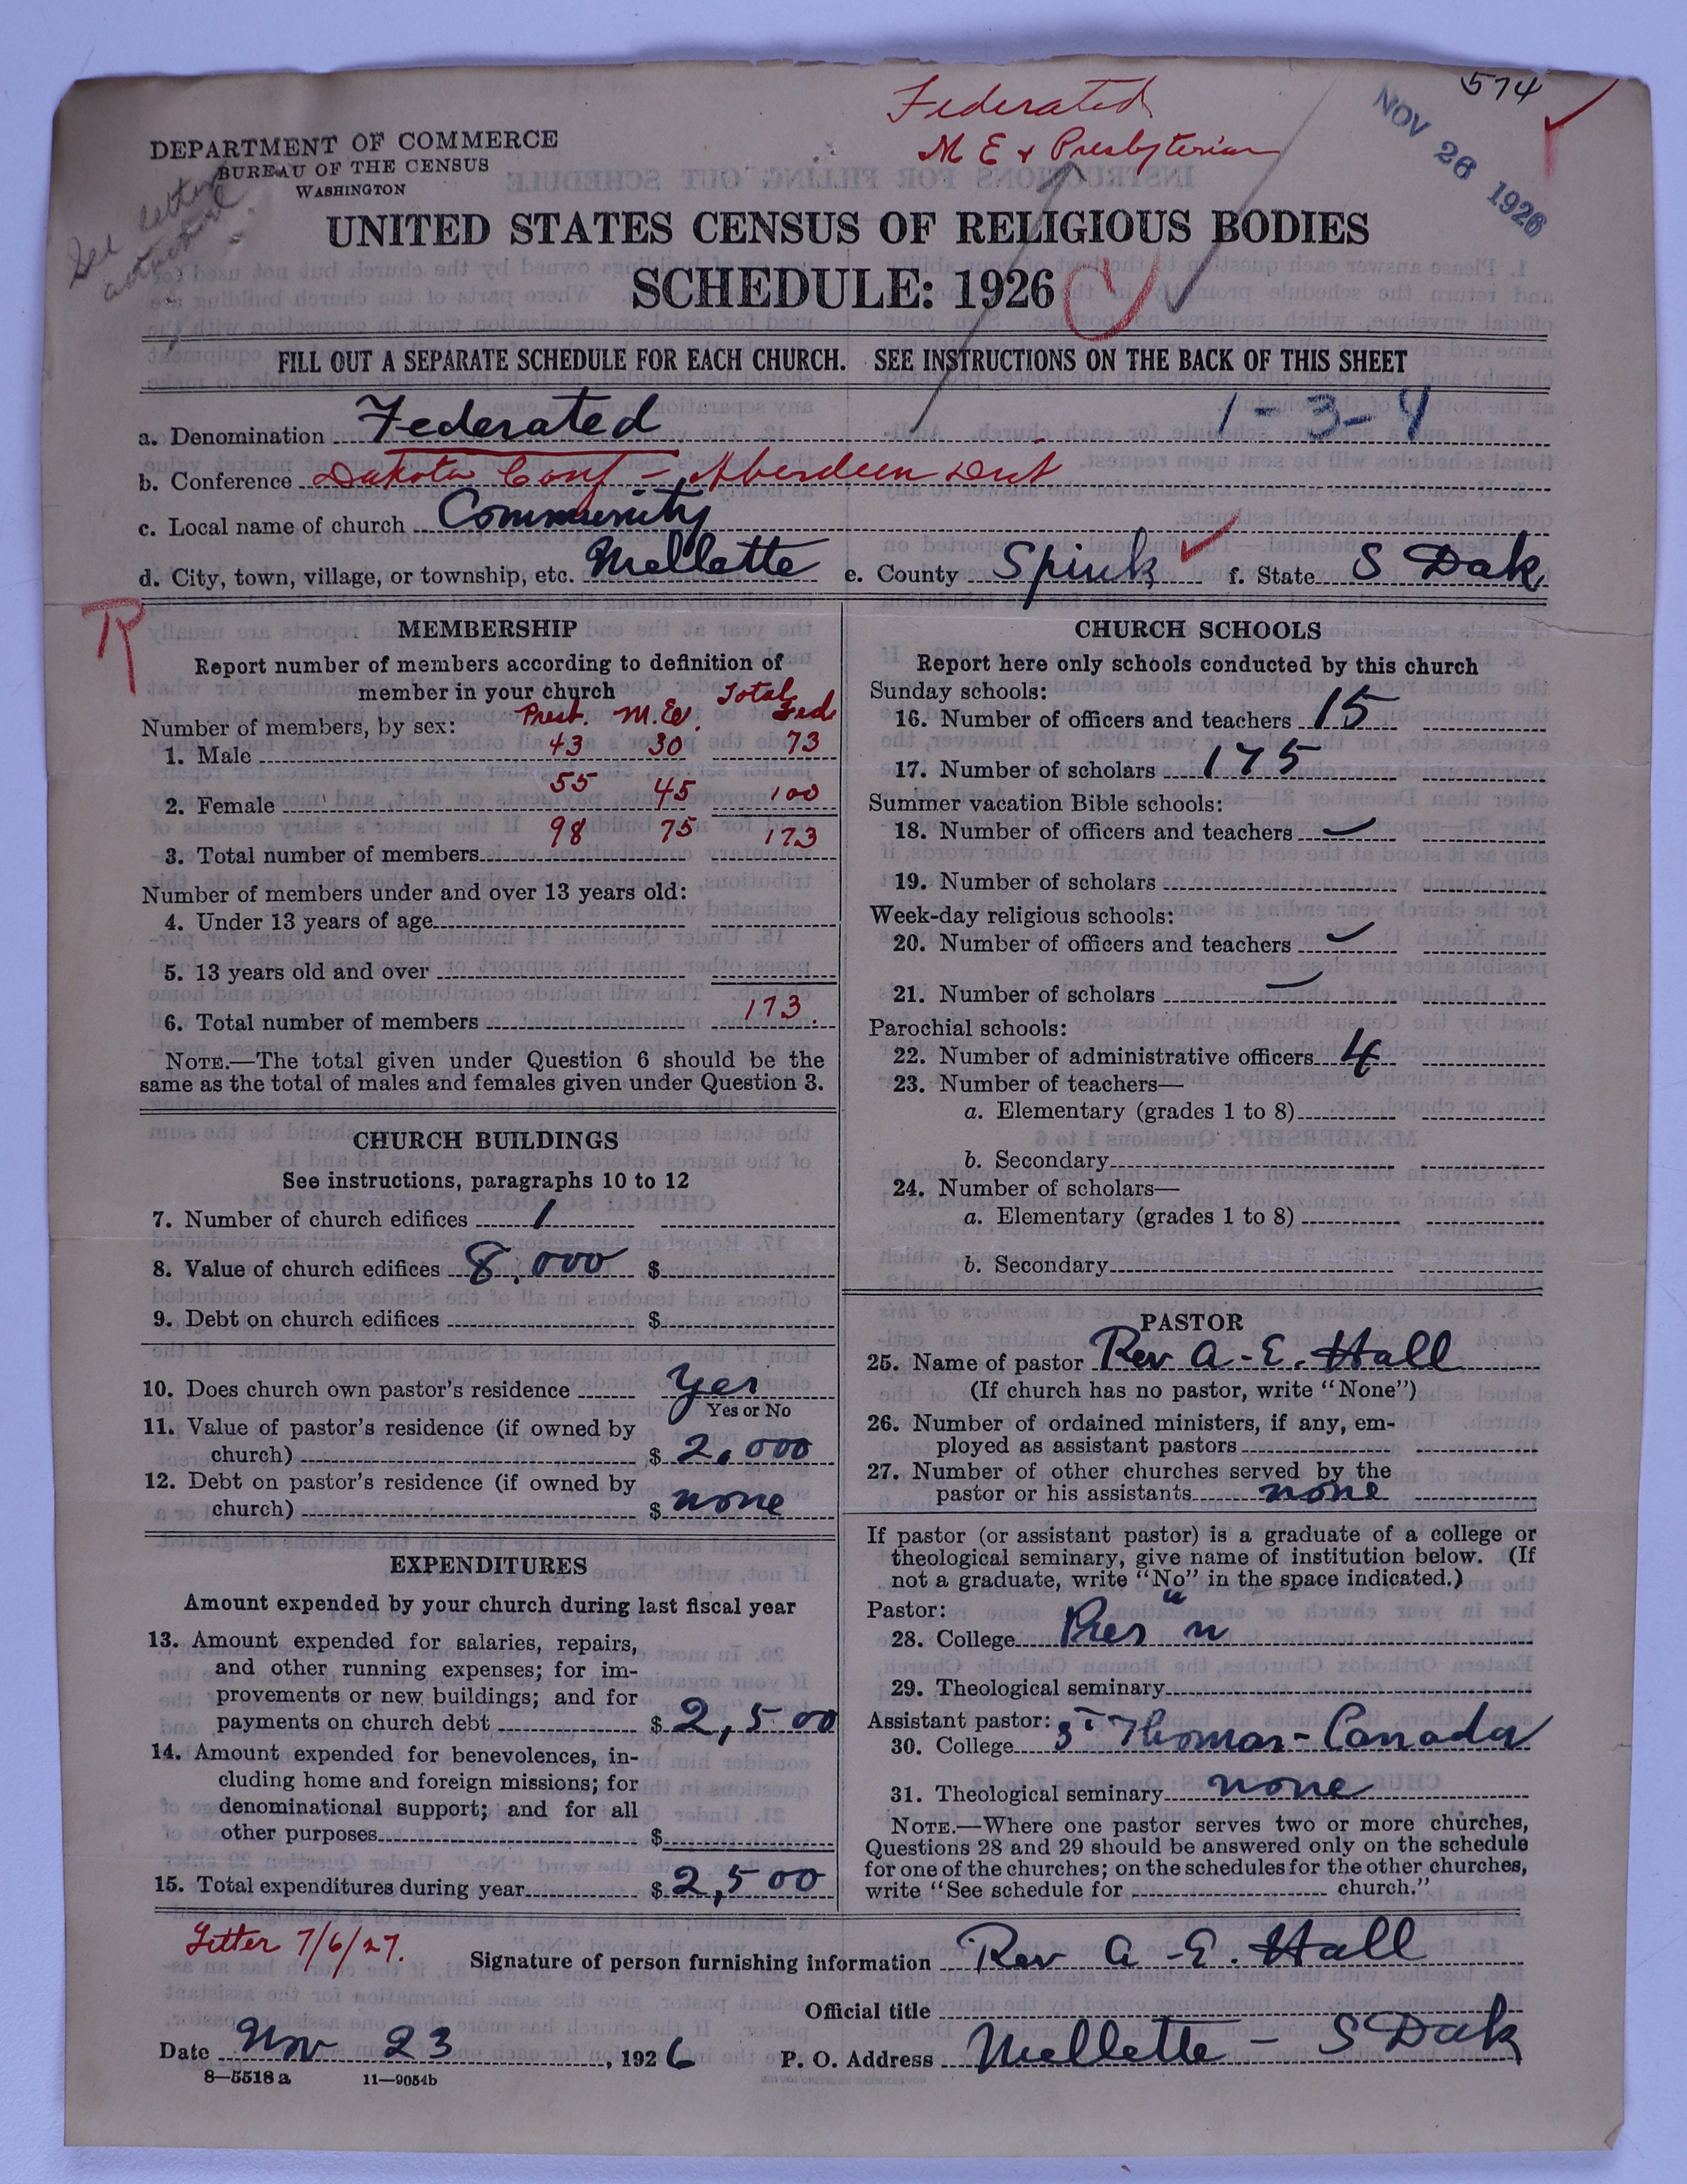 574
Federated
M E & Presbyterian
NOV 26 1926
DEPARTMENT OF COMMERCE
BUREAU OF THE CENSUS
WASHINGTON
See letter
UNITED STATES CENSUS OF RELIGIOUS BODIES
SCHEDULE: 1926
FILL OUT A SEPARATE SCHEDULE FOR EACH CHURCH. SEE INSTRUCTIONS ON THE BACK OF THIS SHEET
1-3-4
a. Denomination Federated
b. Conference Dakota Conf - Aberdeen Dist
c. Local name of church Community
d. City, town, village, or township, etc. Mellette e. County Spink f. State S Dak
R
MEMBERSHIP
Report number of members according to definition of
member in your church
Presb. M.E. Total Fed
Number of members, by sex:
1. Male 43 30 73
2. Female 55 45 100
3. Total number of members 98 75 173
Number of members under and over 13 years old:
4. Under 13 years of age
5. 13 years old and over
6. Total number of members 173.
NOTE.—The total given under Question 6 should be the
same as the total of males and females given under Question 3.
CHURCH BUILDINGS
See instructions, paragraphs 10 to 12
7. Number of church edifices 1
8. Value of church edifices 8,000 $
9. Debt on church edifices $
10. Does church own pastor's residence Yes
Yes or No
11. Value of pastor's residence (if owned by
church) $ 2,000
12. Debt on pastor's residence (if owned by
church) $ none
EXPENDITURES
Amount expended by your church during last fiscal year
13. Amount expended for salaries, repairs,
and other running expenses; for im-
provements or new buildings; and for
payments on church debt $ 2,500
14. Amount expended for benevolences, in-
cluding home and foreign missions; for
denominational support; and for all
other purposes $
15. Total expenditures during year $ 2,500
CHURCH SCHOOLS
Report here only schools conducted by this church
Sunday schools:
16. Number of officers and teachers 15
17. Number of scholars 175
Summer vacation Bible schools:
18. Number of officers and teachers
19. Number of scholars
Week-day religious schools:
20. Number of officers and teachers
21. Number of scholars
Parochial schools:
22. Number of administrative officers 4
23. Number of teachers—
a. Elementary (grades 1 to 8)
b. Secondary
24. Number of scholars—
a. Elementary (grades 1 to 8)
b. Secondary
PASTOR
25. Name of pastor Rev A-E. Hall
(If church has no pastor, write "None")
26. Number of ordained ministers, if any, em-
ployed as assistant pastors
27. Number of other churches served by the
pastor or his assistants none
If pastor (or assistant pastor) is a graduate of a college or
theological seminary, give name of institution below. (If
not a graduate, write "No" in the space indicated.)
Pastor:
28. College
29. Theological seminary
Assistant pastor:
30. College St Thomas - Canada
31. Theological seminary none
NOTE.—Where one pastor serves two or more churches,
Questions 28 and 29 should be answered only on the schedule
for one of the churches; on the schedules for the other churches,
write "See schedule for church."
Letter 7/6/27.
Signature of person furnishing information Rev A-E. Hall
Official title
Date Nov 23, 1926 P. O. Address Mellette - S Dak
8—5518a 11—9054b